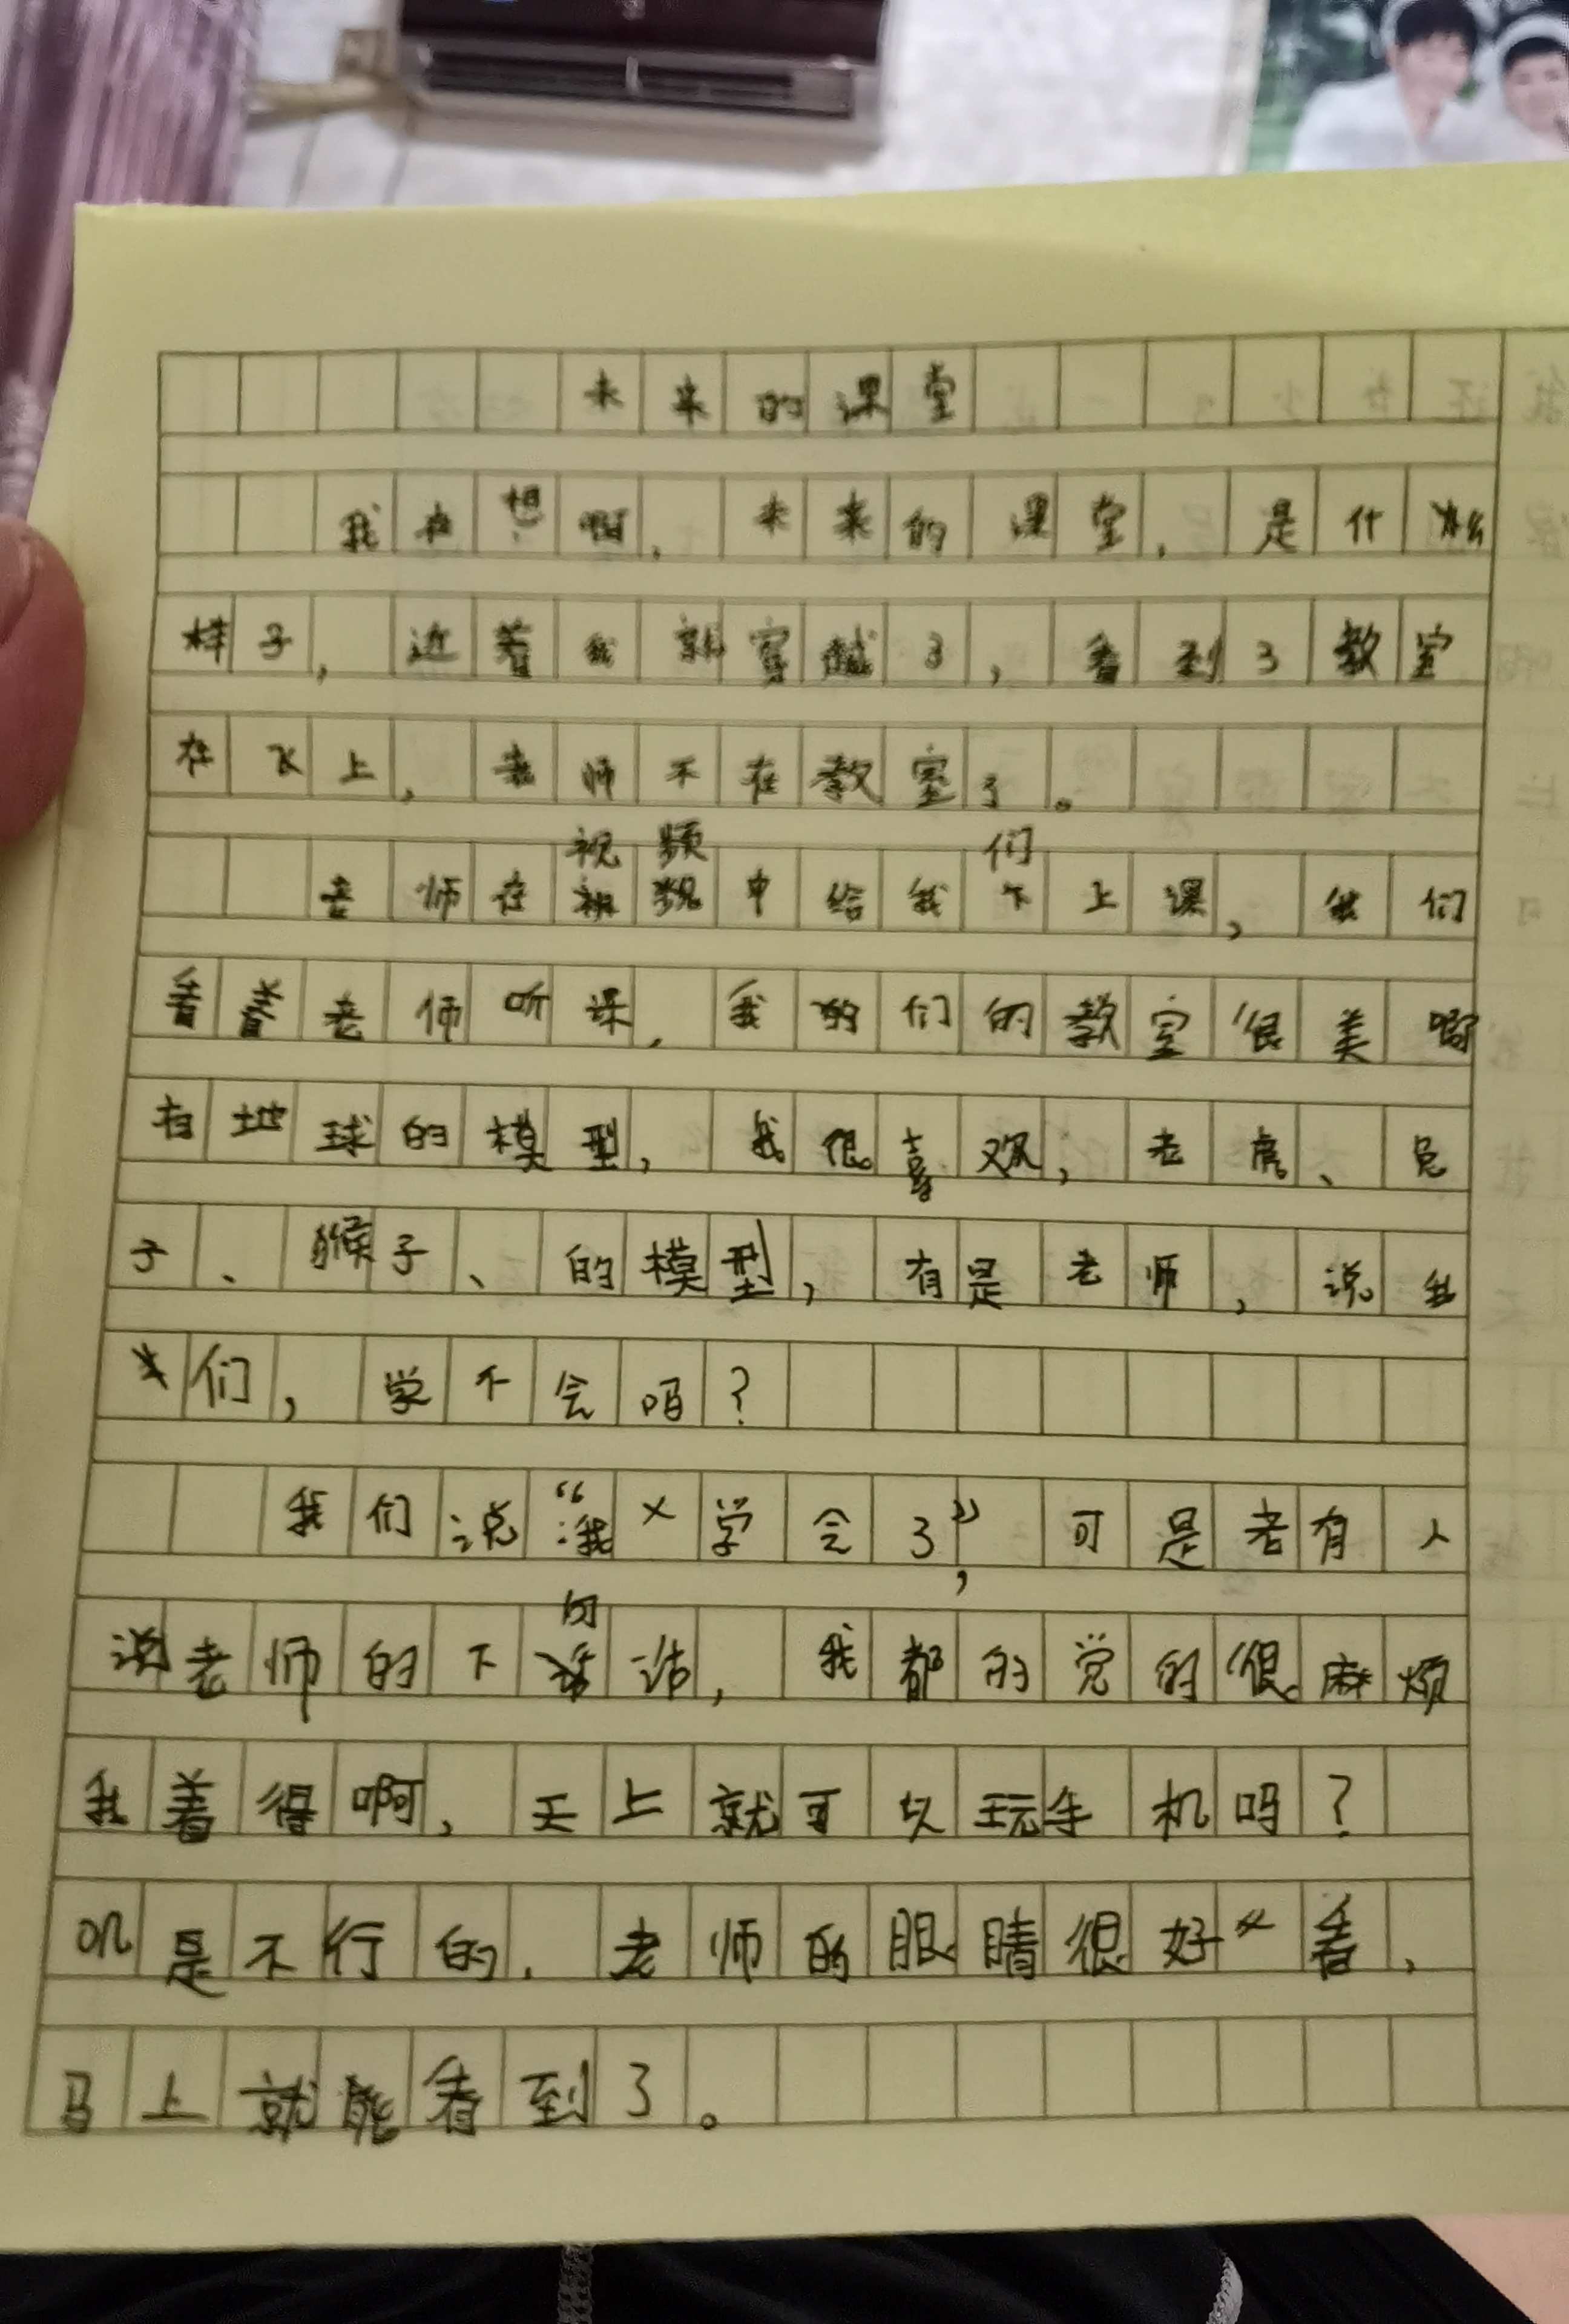 未来的课堂
我在想啊,未来的课堂,是什么
样子,近着我就穿越了,看到了教室
在飞上,老师不在教室了。
老师在视频中给我们上课,我们
看着老师听课,我们的教室很美啊
有地球的模型,我很喜欢,老虎、兔
子、猴子、的模型,有是老师,说我
们,学不会吗?
我们说“我学会了”,可是老有人
说老师的下句话,我都的觉的很麻烦
我着得啊,天上就可以玩手机吗?
是不行的,老师的眼睛很好看,
马上就能看到了。